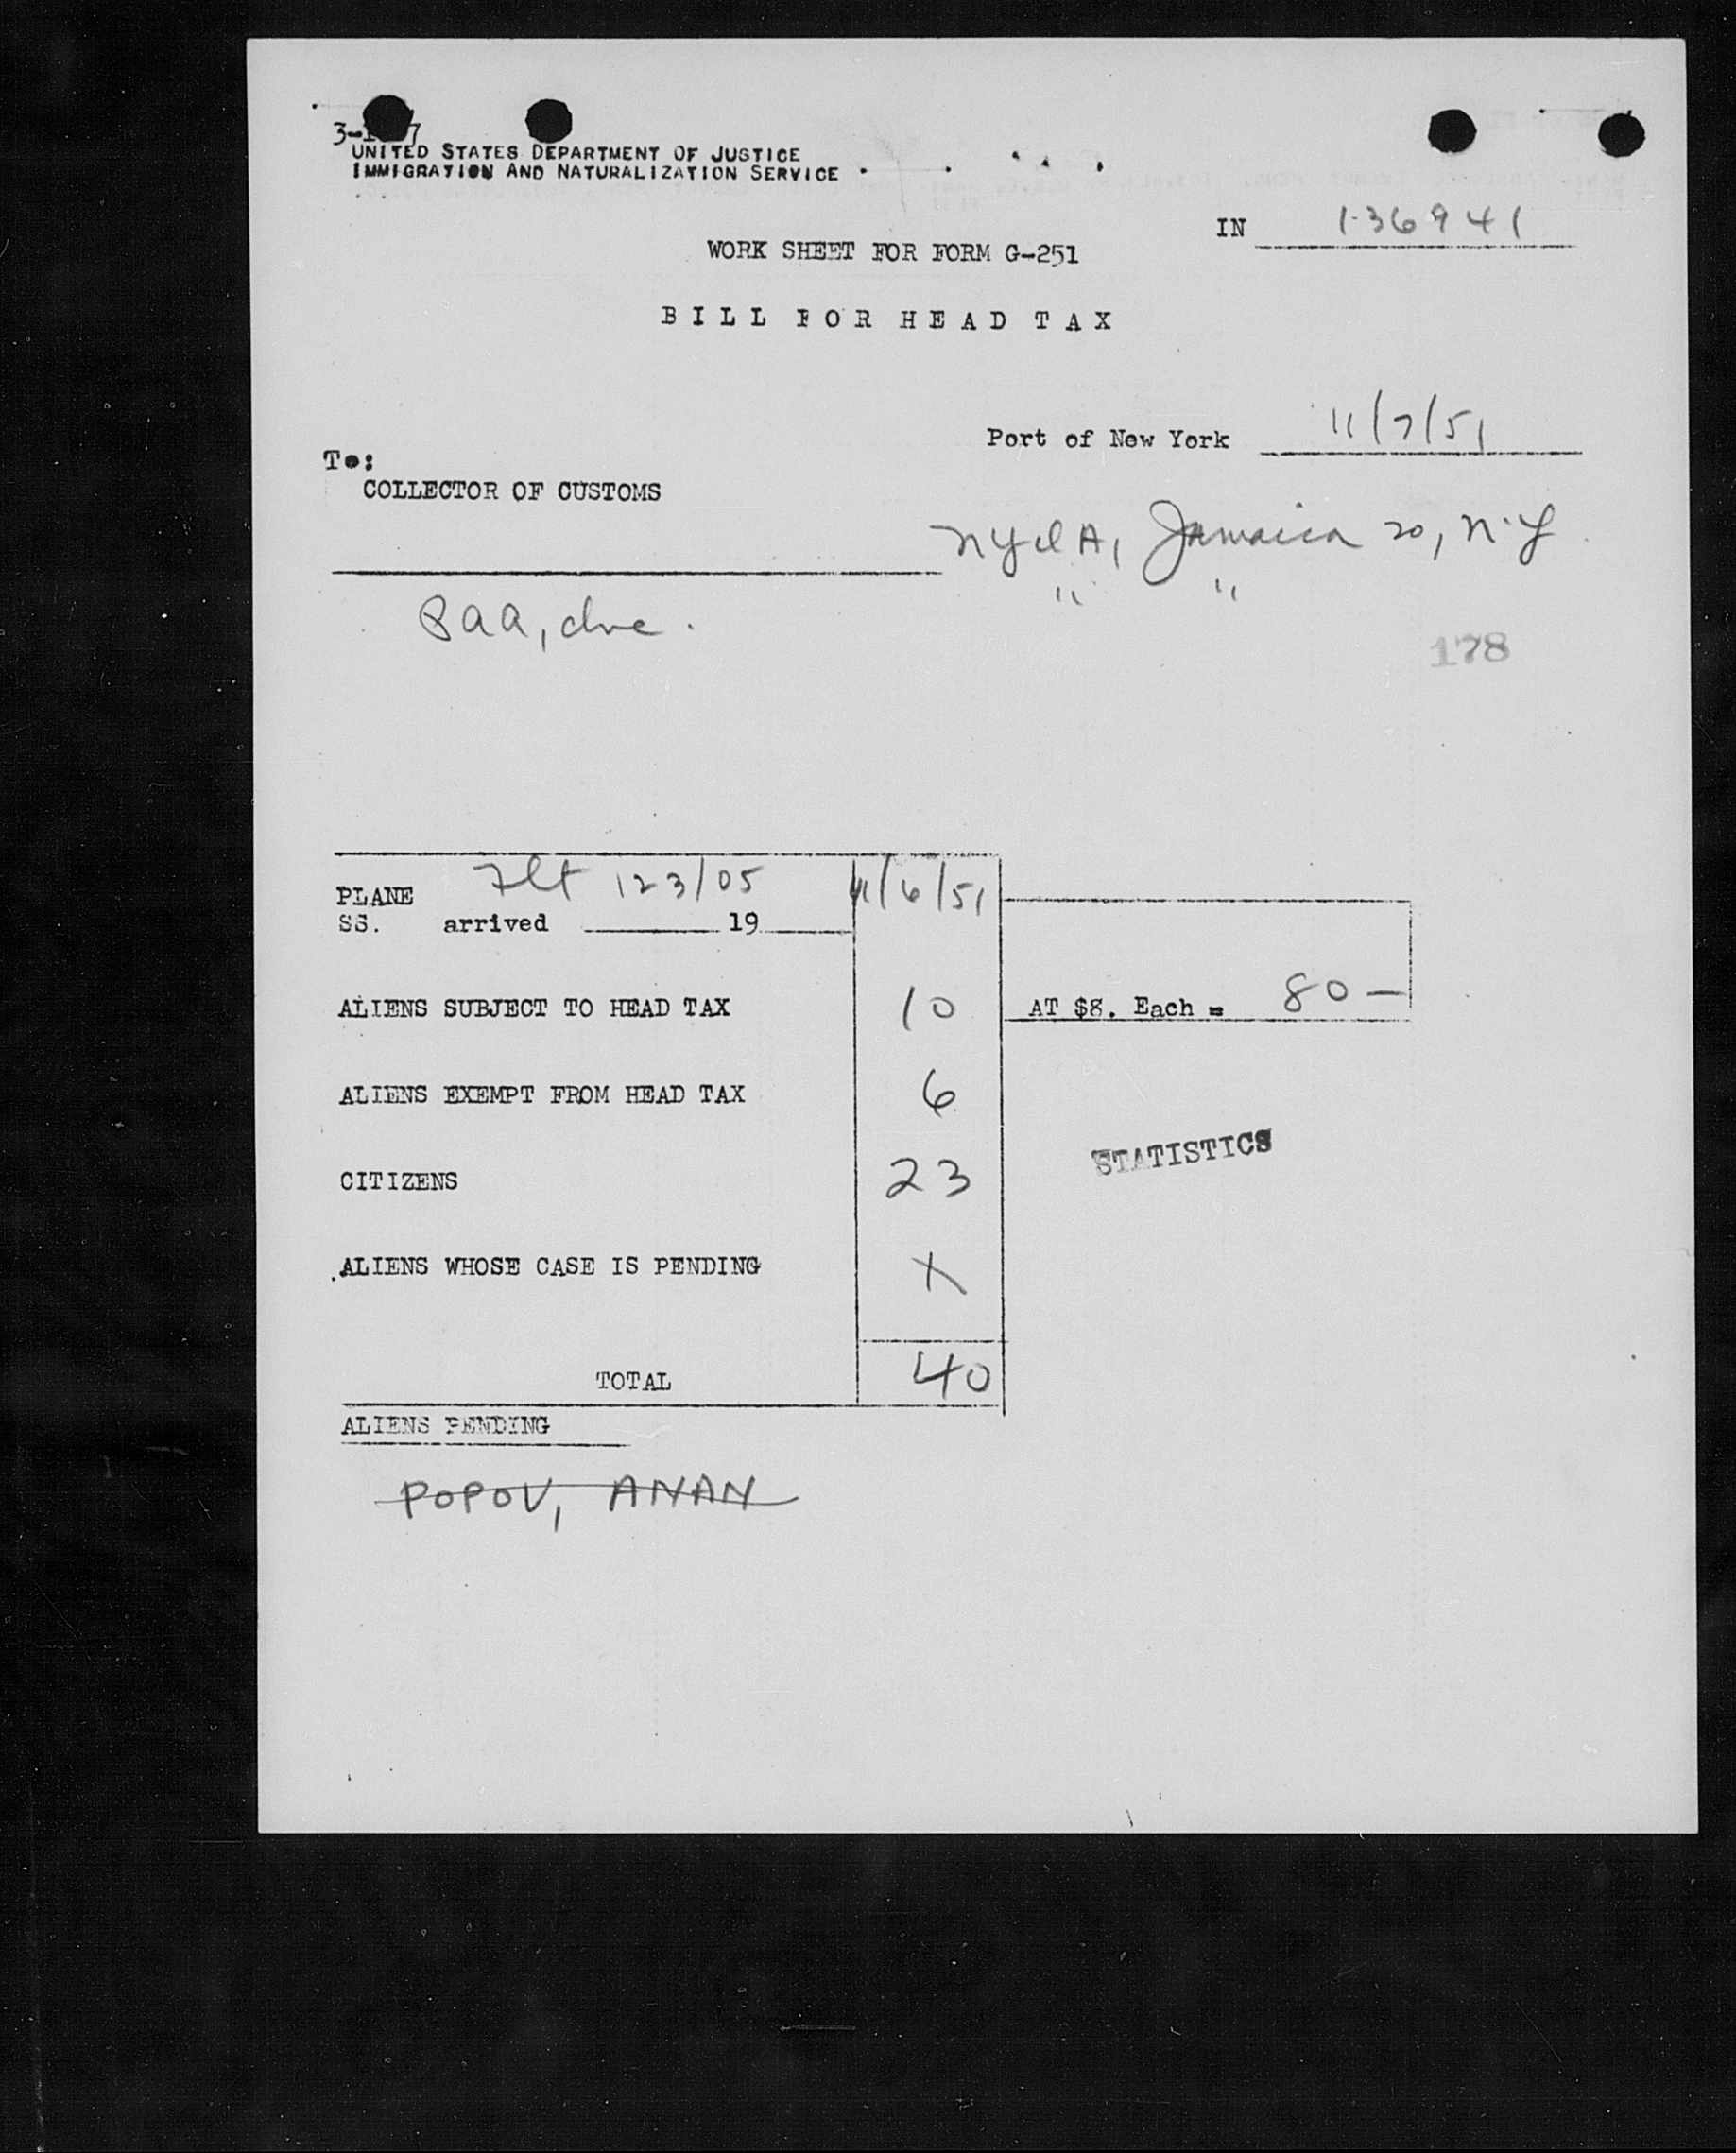 UNITED STATES DEPARTMENT OF JUSTICE
IMMIGRATION AND NATURALIZATION SERVICE
IN 136941
WORK SHEET FOR FORM G-251
BILL FOR HEAD TAX
Port of New York 11/7/51
To:
COLLECTOR OF CUSTOMS
Jamaica 20, N.Y
" "
PAA, Inc.
178
PLANE Flt 123/05 11/6/51
SS. arrived 19
ALIENS SUBJECT TO HEAD TAX 10 AT $8. Each = 80 —
ALIENS EXEMPT FROM HEAD TAX 6
CITIZENS 23
STATISTICS
ALIENS WHOSE CASE IS PENDING X
TOTAL 40
ALIENS PENDING
POPOV, ANAN